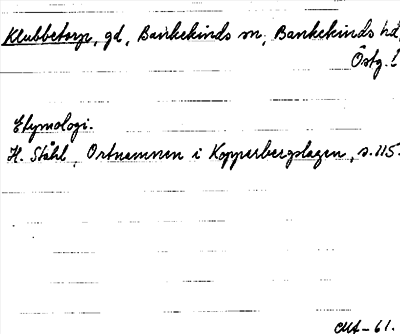 Klubbetorp, gd, Bankekinds sn, Bankekinds hd,
Östg. l
Etymologi.
H. Ståhl, Ortnamnen i Kopparbergslagen, s. 115.
-61.